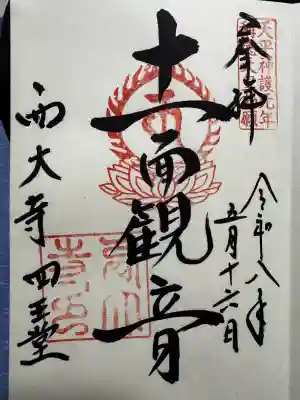 奉拝
天平神護元年
令和八年
五月十六日
十一面観音
西大寺四王堂